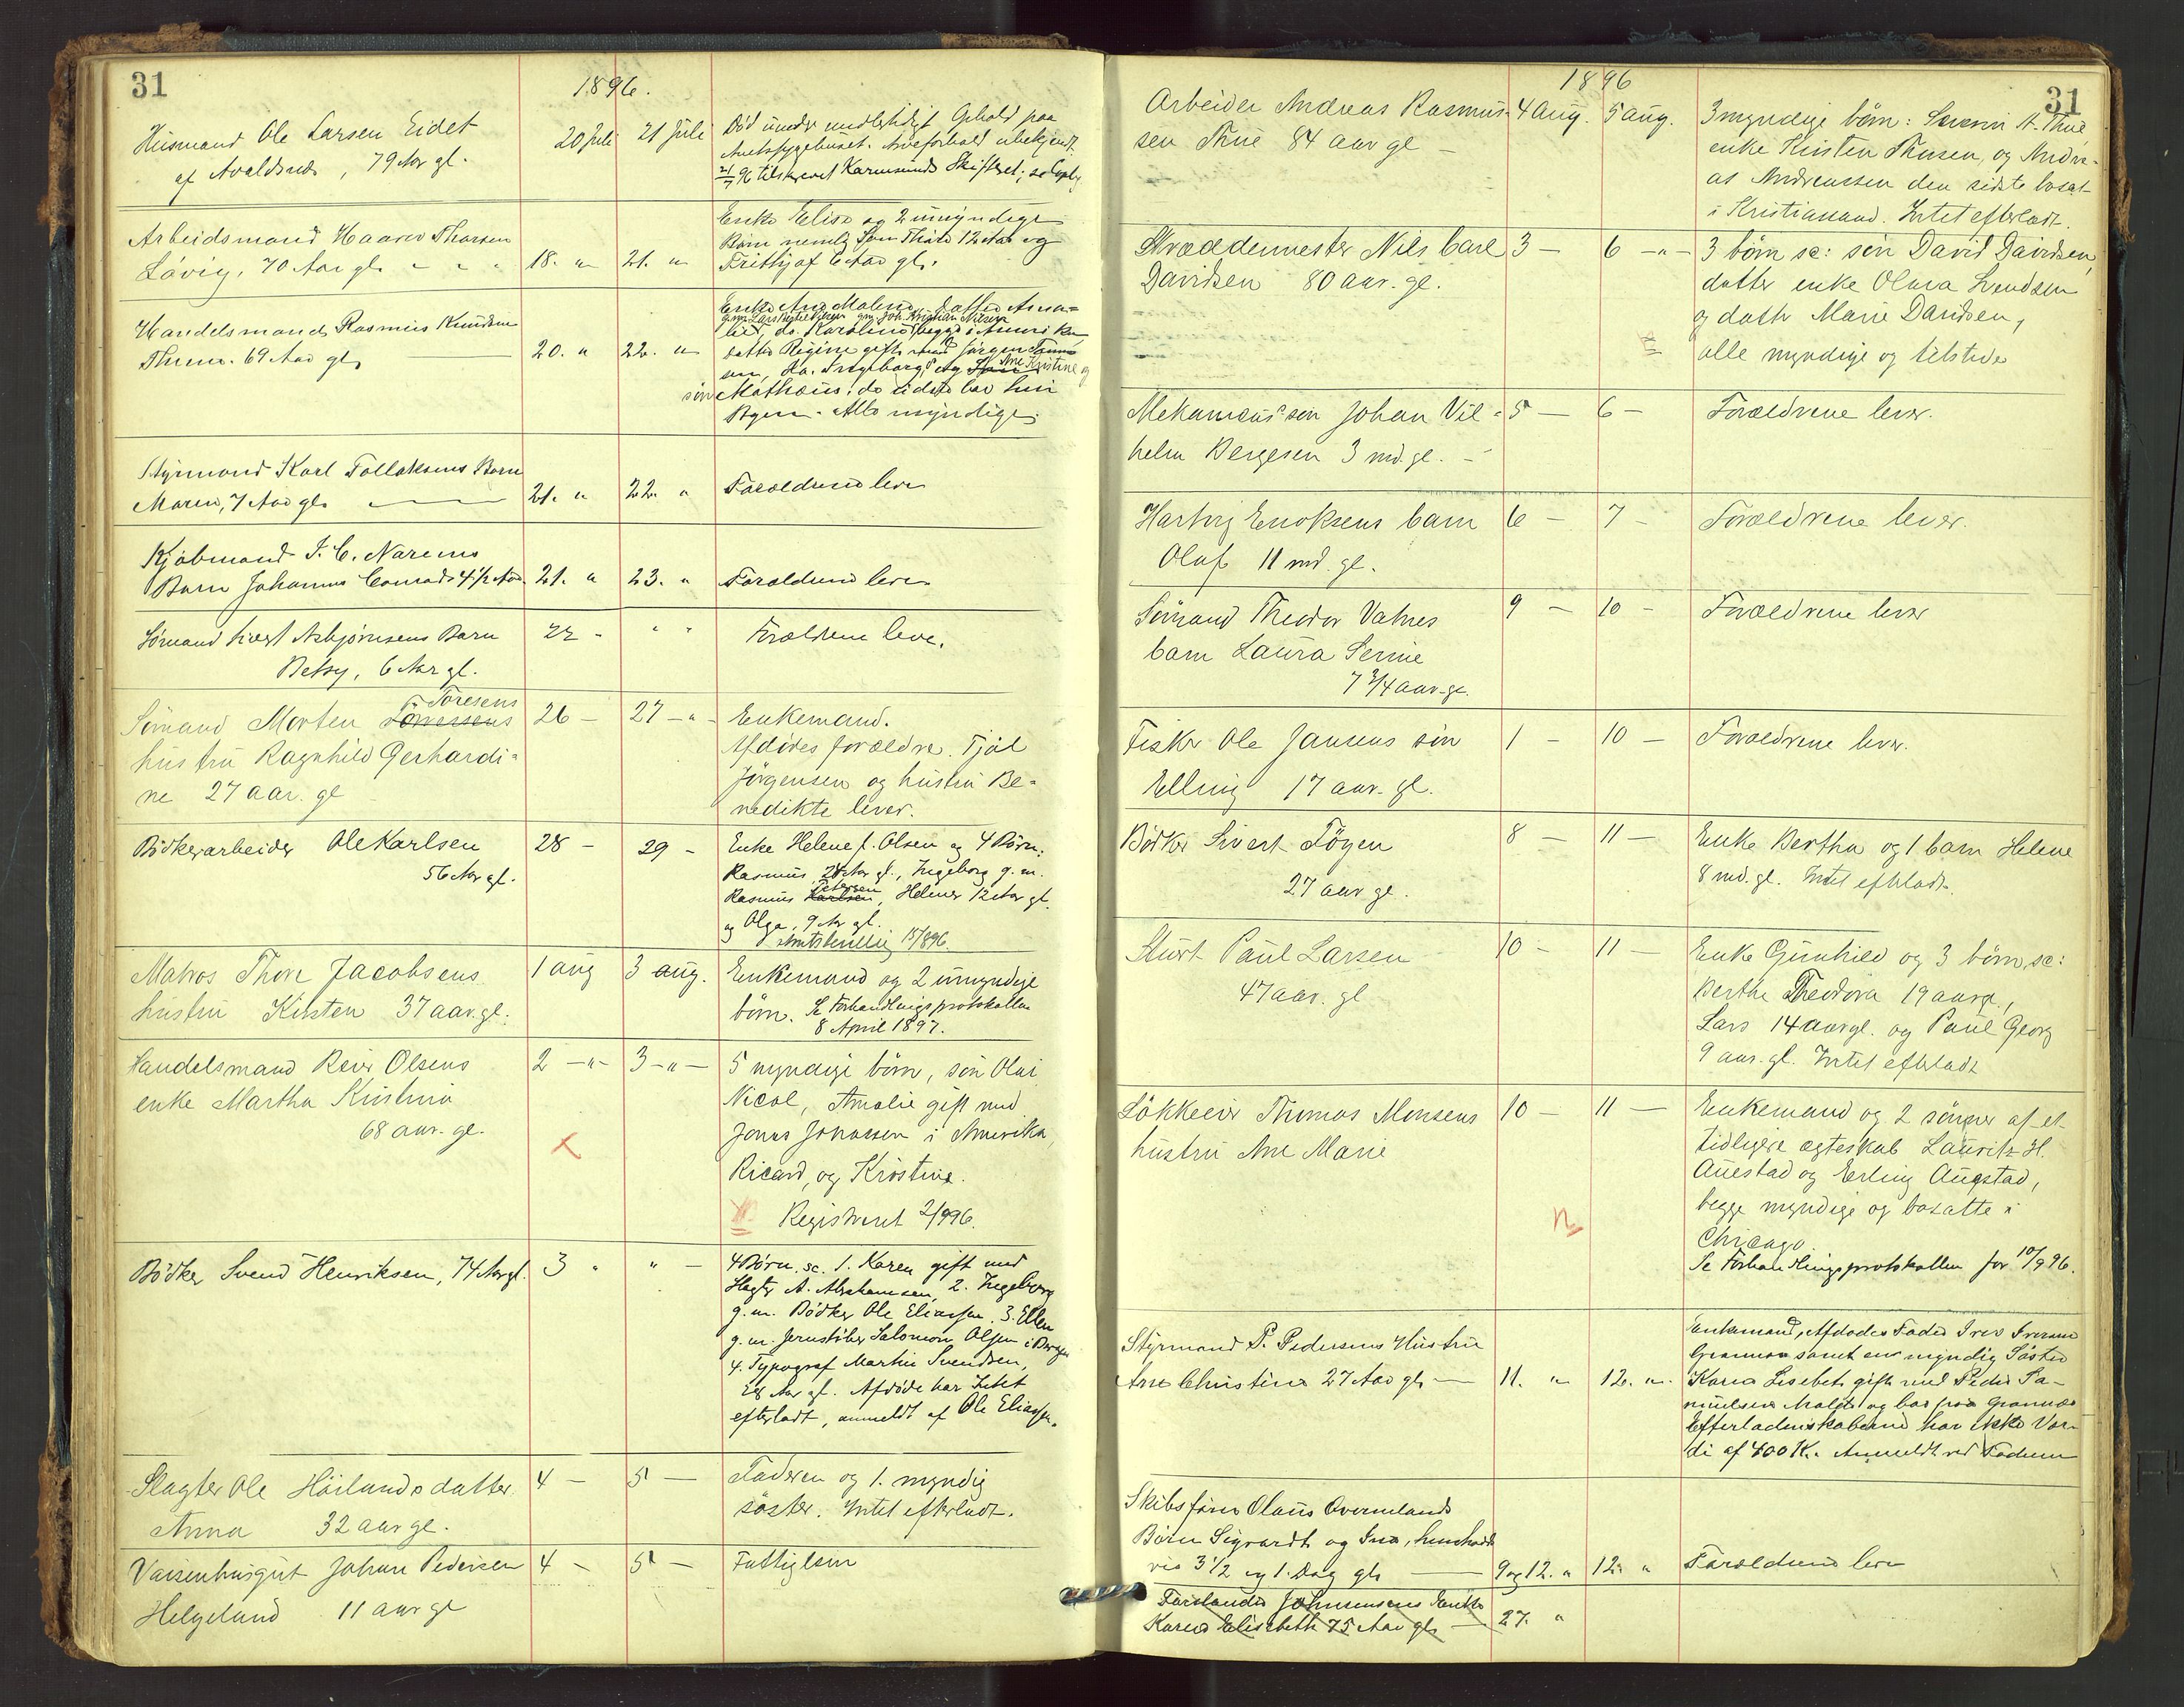 31
1896.
Husmand Ole Larsen Eidet
af Avaldsnæs, 79 Aar gl.
20 Juli
21 Juli
Død under midlertidigt Ophold paa
Amtssygehuset. Arveforhold ubekjendt.
21/7 96 tilskrevet Karmsunds Skifteret; se Copib
Arbeidsmand Haaver Thorsen
Løvig, 70 Aar gl.
18. "
21. "
Enke Elise og 2 umyndige
Børn nemlig Søn Thore 12 Aar og
Frithjof 6 Aar gl.
Handelsmand Rasmus Knudsen
Thuen. 69 Aar gl
20. "
22. "
Enke Ane Malene, Datter Ama=
lie, do. Karoline begge i Amerika
datter Regine gift med Jørgen
sen, do. Ingeborg, og Ane Kristine og
søn Mathæus. do sidste bor hin
Byen. Alle myndige.
Styrmand Karl Tollaksens Barn
Maren, 7 Aar gl.
21. "
22. "
Forældrene leve
Kjøbmand J. C. Narems
Barn Johannes Conrad 4 1/2 Aar
21. "
23. "
Forældrene leve
Sømand Sivert Asbjørnsens Barn
Betsy, 6 Aar gl.
22 -
" "
Forældrene leve.
Toresens
Sömand Morten Tönnessens
hustru Ragnhild Gerhardi=
ne 27 aar. gl
26 -
27 - " -
Enkemand.
Afdödes forældre Tjöl
Jörgensen og hustru Be=
nedikte lever.
Bødkerarbeider Ole Karlsen
56 Aar gl.
28 -
29 -
Enke Helene f. Olsen og 4 Børn:
Rasmus, 28 Aar gl., Ingeborg g. m.
Petersen
Rasmus Karlsen, Helmer 12 Aar gl.
og Olga, 9 Aar gl.
Matros Thore Jacobsens
hustru Kirsten 37 aar. gl.
1 aug
3 aug.
Enkemand og 2 umyndige
börn. Se Forhandlingsprotokollen
8 April 1897.
Handelsmand Reier Olsens
enke Martha Kristine
68 aar. gl.
2 - " -
3 - " -
5 myndige börn, sön Olai
Nicol, Amalie gift med
Jonas Jonassen i Amerika,
Ricard, og Kristine.
Registreret 2/9 96.
Bödker Svend Henriksen, 74 Aar gl.
3 "
" -
4 Børn, sc. 1. Karen gift med
Slagter A. Abrahamsen, 2. Ingeborg
g. m. Bödker Ole Eliassen. 3. Ellen
g. m. Jernstöber Salomon Olsen i Bergen
4. Typograf Martin Svendsen,
28 Aar gl. Afdöde har Intet
efterladt, anmeldt af Ole Eliassen.
Slagter Ole Höilands datter
Anna 32 aar gl.
4 -
5 -
Faderen og 1. myndig
söster. Intet efterladt.
Vaisenhusgut Johan Pedersen
Helgeland 11 aar gl
4 -
5 -
Fattiglem
1896
31
Arbeider Andreas Rasmus-
sen Thue 84 aar gl -
4 aug.
5 aug.
3 myndige börn: Severin A. Thue
enke Kirsten Thusen, og Andre-
as Andreassen den sidste bosat
i Kristiansand. Intet efterladt.
Skræddermester Nils Carl
Davidsen 80 aar. gl.
3 -
6 - " -
3 börn sc: sön David Davidsen,
datter enke Olava Svendsen
og datter Marie Davidsen,
alle myndige og tilstede
Mekanicus' sön Johan Vil-
helm Bergesen 3 md. gl. -
5 -
6 -
Forældrene lever.
Hartvig Enoksens barn
Olaf 11 md. gl.
6 -
7 -
Forældrene lever.
Sömand Theodor Vatnes
barn Laura Serine
7 3/4 aar. gl.
9 -
10 -
Forældrene lever
Fisker Ole Jansens sön
Elling 17 aar. gl.
1 -
10 -
Forældrene lever.
Bödker Sivert Töyen
27 aar gl.
8 -
11 -
Enke Bertha og 1 barn Helene
8 md. gl. Intet efterladt.
Stuert Paul Larsen
47 aar. gl
10 -
11 -
Enke Gunhild og 3 börn, sc:
Berthe Theodora 19 aar gl,
Lars 14 aar gl. og Paul Georg
9 aar. gl. Intet efterladt
Lökkeeier Thomas Monsens
hustru Ane Marie
10 -
11 -
Enkemand og 2 sönner af et
tidligere ægteskab Lauritz H.
Auestad og Erling Auestad,
begge myndige og bosatte i
Chicago.
Se Forhandlingsprotokollen for 10/9 96.
Styrmand P. Pedersens Hustru
Ane Christine 27 Aar gl.
11. "
12. "
Enkemand, Afdødes Fader Iver Iversen
Grannes samt en myndig Søster
Karen Lisebet gift med Peder Sa-
muelsen og bor paa Grannes
Efterladenskaberne har ikke Vær-
di af 400 K. Anmeldt ved Faderen
Skibsfører Olaus Ovormlands
Børn Sigvardt og Ina, henholds
vis 3 1/2 og 1. Dag gl.
9 og 12. "
12. "
Forældrene leve
Karen Elisebeth 75 Aar gl.
27. "